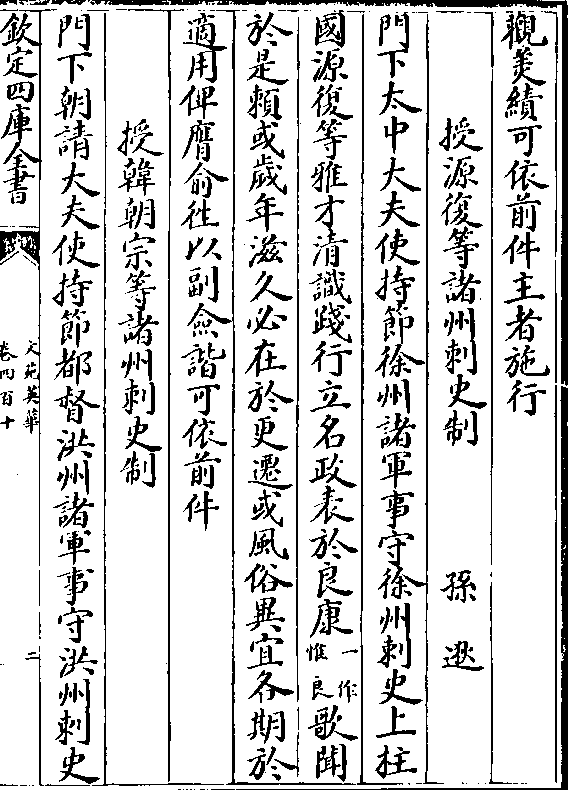 觀美績可依前件主者施行
授源復等諸州刺史制
孫逖
門下太中大夫使持節徐州諸軍事守徐州刺史上柱
國源復等雅才清識踐行立名政表於良康一作惟良歌聞
於是頼或歲年滋久必在於更遷或風俗異宜各期於
適用俾膺俞徃以副僉諧可依前件
授韓朝宗等諸州刺史制
門下朝請大夫使持節都督洪州諸軍事守洪州刺史
欽定四庫全書
文苑英華
卷四百十
二